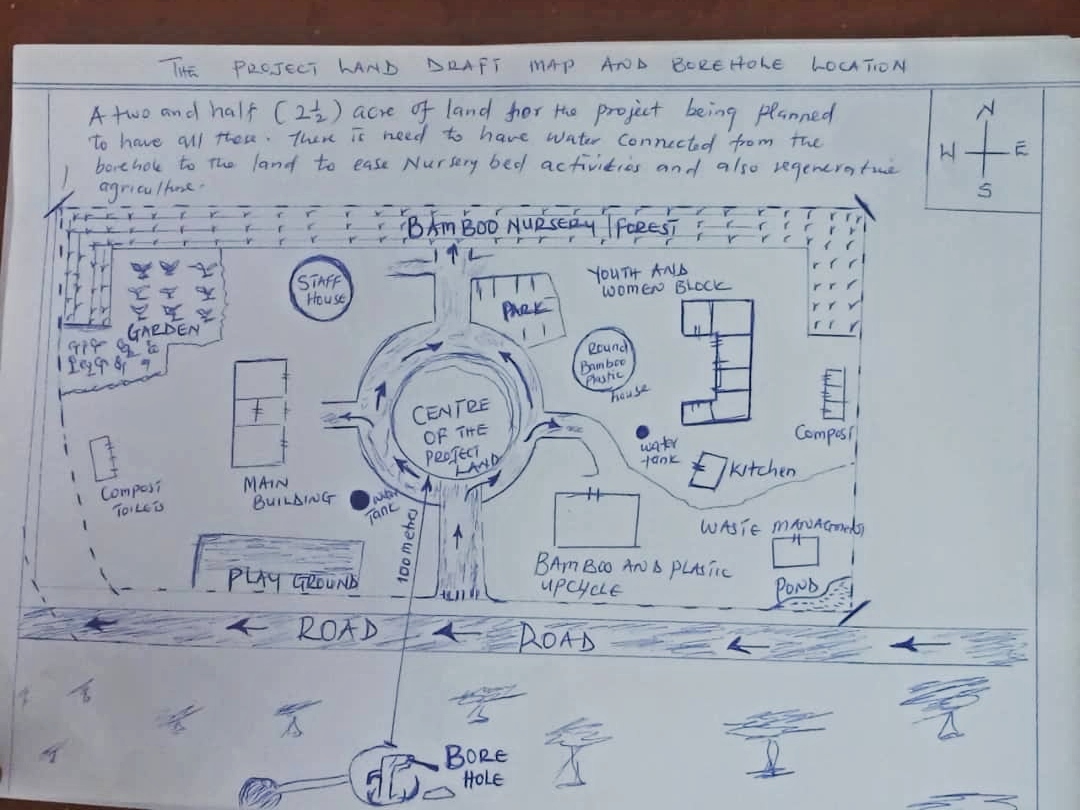 THE PROJECT LAND DRAFT MAP AND BOREHOLE LOCATION
A two and half (2½) acre of land for the project being planned
to have all these. There is need to have water connected from the
borehole to the land to ease Nursery bed activities and also regenerative
agriculture.
N
W E
S
BAMBOO NURSERY | FOREST
STAFF
HOUSE
PARK
YOUTH AND
WOMEN BLOCK
GARDEN
Round
Bamboo
Plastic
house
CENTRE
OF THE
PROJECT
LAND
water
tank
Compost
Kitchen
COMPOST
TOILETS
MAIN
BUILDING
water
TANK
100 metres
WASTE MANAGEMENT
PLAY GROUND
BAMBOO AND PLASTIC
UPCYCLE
POND
ROAD ROAD
BORE
HOLE